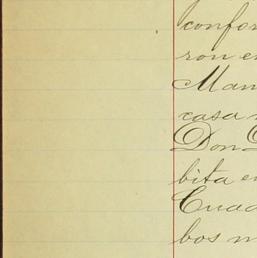 confor
ron e
Man
casa
Don
bita e
Cuad
bos m